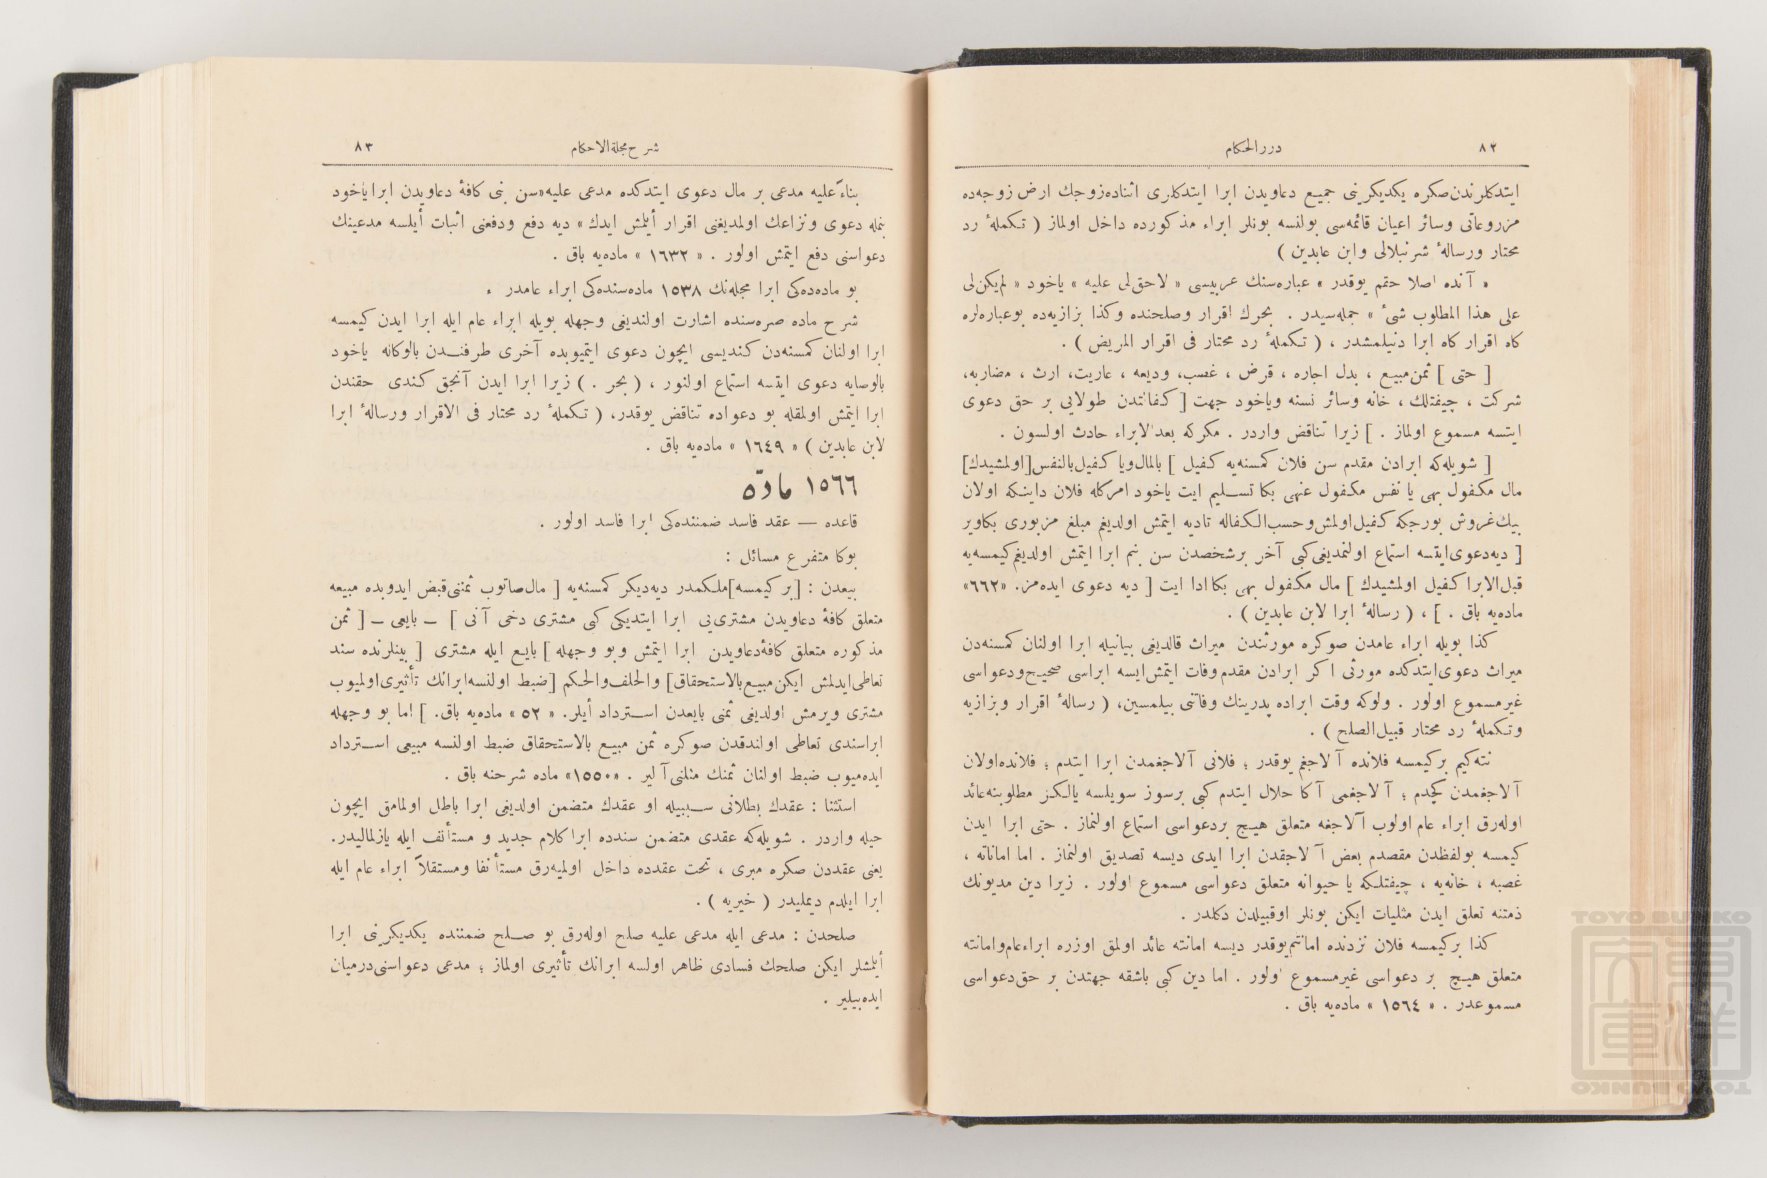 ٨٢
دررالحكام
ايتدكلرندن صكره يكديكرينی جميع دعاويدن ابرا ايتدكلری اثناده زوجك ارض زوجه‌ده
مزروعاتی وسائر اعيان قائمه‌سی بولنسه بونلر ابراء مذكورده داخل اولماز ( تكملهٔ رد
محتار ورسالهٔ شرنبلالی وابن عابدين )
« آنده اصلا حقم يوقدر » عباره‌سنك عربيسی « لاحق لی عليه » ياخود « لم يكن لی
علی هذا المطلوب شیٔ » جمله‌سيدر . بحرك اقرار وصلحنده وكذا بزازيه‌ده بوعباره‌لره
كاه اقرار كاه ابرا دنيلمشدر ، ( تكملهٔ رد محتار فی اقرار المريض ) .
[ حتی ] ثمن مبيع ، بدل اجاره ، قرض ، غصب، وديعه ، عاريت، ارث ، مضاربه،
شركت ، چيفتلك ، خانه وسائر نسنه وياخود جهت [ كفالتدن طولايی بر حق دعوی
ايتسه مسموع اولماز . ] زيرا تناقض واردر . مكركه بعدالابراء حادث اولسون .
[ شويله‌كه ابرادن مقدم سن فلان كمسنه‌يه كفيل ] بالمال ويا كفيل بالنفس [اولمشيدك]
مال مكفول بهی يا نفس مكفول عنهی بكا تسليم ايت ياخود امركله فلان داينكه اولان
بيك غروش بورجكه كفيل اولمش وحسب الكفاله تاديه ايتمش اولديغم مبلغ مزبوری بكاوير
[ ديه دعوی ايتسه استماع اولنمديغی كبی آخر برشخصدن سن بنم ابرا ايتمش اولديغم كيمسه‌يه
قبل الابرا كفيل اولمشيدك ] مال مكفول بهی بكا ادا ايت [ ديه دعوی ايده‌مز. «٦٦٢»
ماده‌يه باق . ] ، ( رسالهٔ ابرا لابن عابدين ) .
كذا بويله ابراء عامدن صوكره مورثندن ميراث قالديغی بيانيله ابرا اولنان كمسنه‌دن
ميراث دعوی ايتدكده مورثی اكر ابرادن مقدم وفات ايتمش ايسه ابراسی صحيح ودعواسی
غيرمسموع اولور . ولوكه وقت ابراده پدرينك وفاتی بيلمسين، ( رسالهٔ اقرار وبزازيه
وتكملهٔ رد محتار قبيل الصلح ) .
نته‌كيم بركيمسه فلانده آلاجغم يوقدر ؛ فلانی آلاجغمدن ابرا ايتدم ؛ فلانده‌اولان
آلاجغمدن كچدم ؛ آلاجغمی آكا حلال ايتدم كبی برسوز سويلسه يالكز مطلوبنه عائد
اوله‌رق ابراء عام اولوب آلاجغه متعلق هيچ بردعواسی استماع اولنماز . حتی ابرا ايدن
كيمسه بولفظدن مقصدم بعض آلاجقدن ابرا ايدی ديسه تصديق اولنماز . اما اماناته ،
غصبه ، خانه‌يه ، چيفتلكه يا حيوانه متعلق دعواسی مسموع اولور . زيرا دين مديونك
ذمتنه تعلق ايدن مثليات ايكن بونلر اوقبيلدن دكلدر .
كذا بركيمسه فلان نزدنده امانتم يوقدر ديسه امانته عائد اولمق اوزره ابراء عام وامانته
متعلق هيچ بر دعواسی غيرمسموع اولور . اما دين كبی باشقه جهتدن بر حق دعواسی
مسموعدر . « ١٥٦٤ » ماده‌يه باق .
شرح مجلةالاحكام
٨٣
بناءً عليه مدعی بر مال دعوی ايتدكده مدعی عليه «سن بنی كافهٔ دعاويدن ابرا ياخود
بنمله دعوی ونزاعك اولمديغنی اقرار أيلمش ايدك » ديه دفع ودفعنی اثبات أيلسه مدعينك
دعواسنی دفع ايتمش اولور . « ١٦٣٢ » ماده‌يه باق .
بو ماده‌ده‌كی ابرا مجله‌نك ١٥٣٨ ماده‌سنده‌كی ابراء عامدر .
شرح ماده صره‌سنده اشارت اولنديغی وجهله بويله ابراء عام ايله ابرا ايدن كيمسه
ابرا اولنان كمسنه‌دن كنديسی ايچون دعوی ايتميوبده آخری طرفندن بالوكاله ياخود
بالوصايه دعوی ايتسه استماع اولنور ، ( بحر . ) زيرا ابرا ايدن آنجق كندی حقندن
ابرا ايتمش اولمقله بو دعواده تناقض يوقدر، ( تكملهٔ رد محتار فی الاقرار ورسالهٔ ابرا
لابن عابدين ) « ١٦٤٩ » ماده‌يه باق .
١٥٦٦ مادّه
قاعده — عقد فاسد ضمننده‌كی ابرا فاسد اولور .
بوكا متفرع مسائل :
بيعدن : [بر كيمسه] ملكمدر ديه ديكر كمسنه‌يه [ مال صاتوب ثمننی قبض ايدوبده مبيعه
متعلق كافهٔ دعاويدن مشتری‌يی ابرا ايتديكی كبی مشتری دخی آنی ] – بايعی – [ ثمن
مذكوره متعلق كافهٔ دعاويدن ابرا ايتمش وبو وجهله ] بايع ايله مشتری [ بينلرنده سند
تعاطی ايدلمش ايكن مبيع بالاستحقاق] والحلف والحكم [ضبط اولنسه ابرانك تأثيری اولميوب
مشتری ويرمش اولديغی ثمنی بايعدن استرداد أيلر. « ٥٢ » ماده‌يه باق. ] اما بو وجهله
ابراسندی تعاطی اولندقدن صوكره ثمن مبيع بالاستحقاق ضبط اولنسه مبيعی استرداد
ايده‌ميوب ضبط اولنان ثمنك مثلنی آلير . «١٥٥٠» ماده شرحنه باق .
استثنا : عقدك بطلانی سببيله او عقدك متضمن اولديغی ابرا باطل اولمامق ايچون
حيله واردر . شويله‌كه عقدی متضمن سندده ابرا كلام جديد و مستأنف ايله يازلماليدر.
يعنی عقددن صكره مبری ، تحت عقدده داخل اولميه‌رق مستأنفا ومستقلاً ابراء عام ايله
ابرا ايلدم ديمليدر ( خيريه ) .
صلحدن : مدعی ايله مدعی عليه صلح اوله‌رق بو صلح ضمننده يكديكرينی ابرا
أيلمشلر ايكن صلحك فسادی ظاهر اولسه ابرانك تأثيری اولماز ؛ مدعی دعواسنی درميان
ايده‌بيلير .
TOYO BUNKO